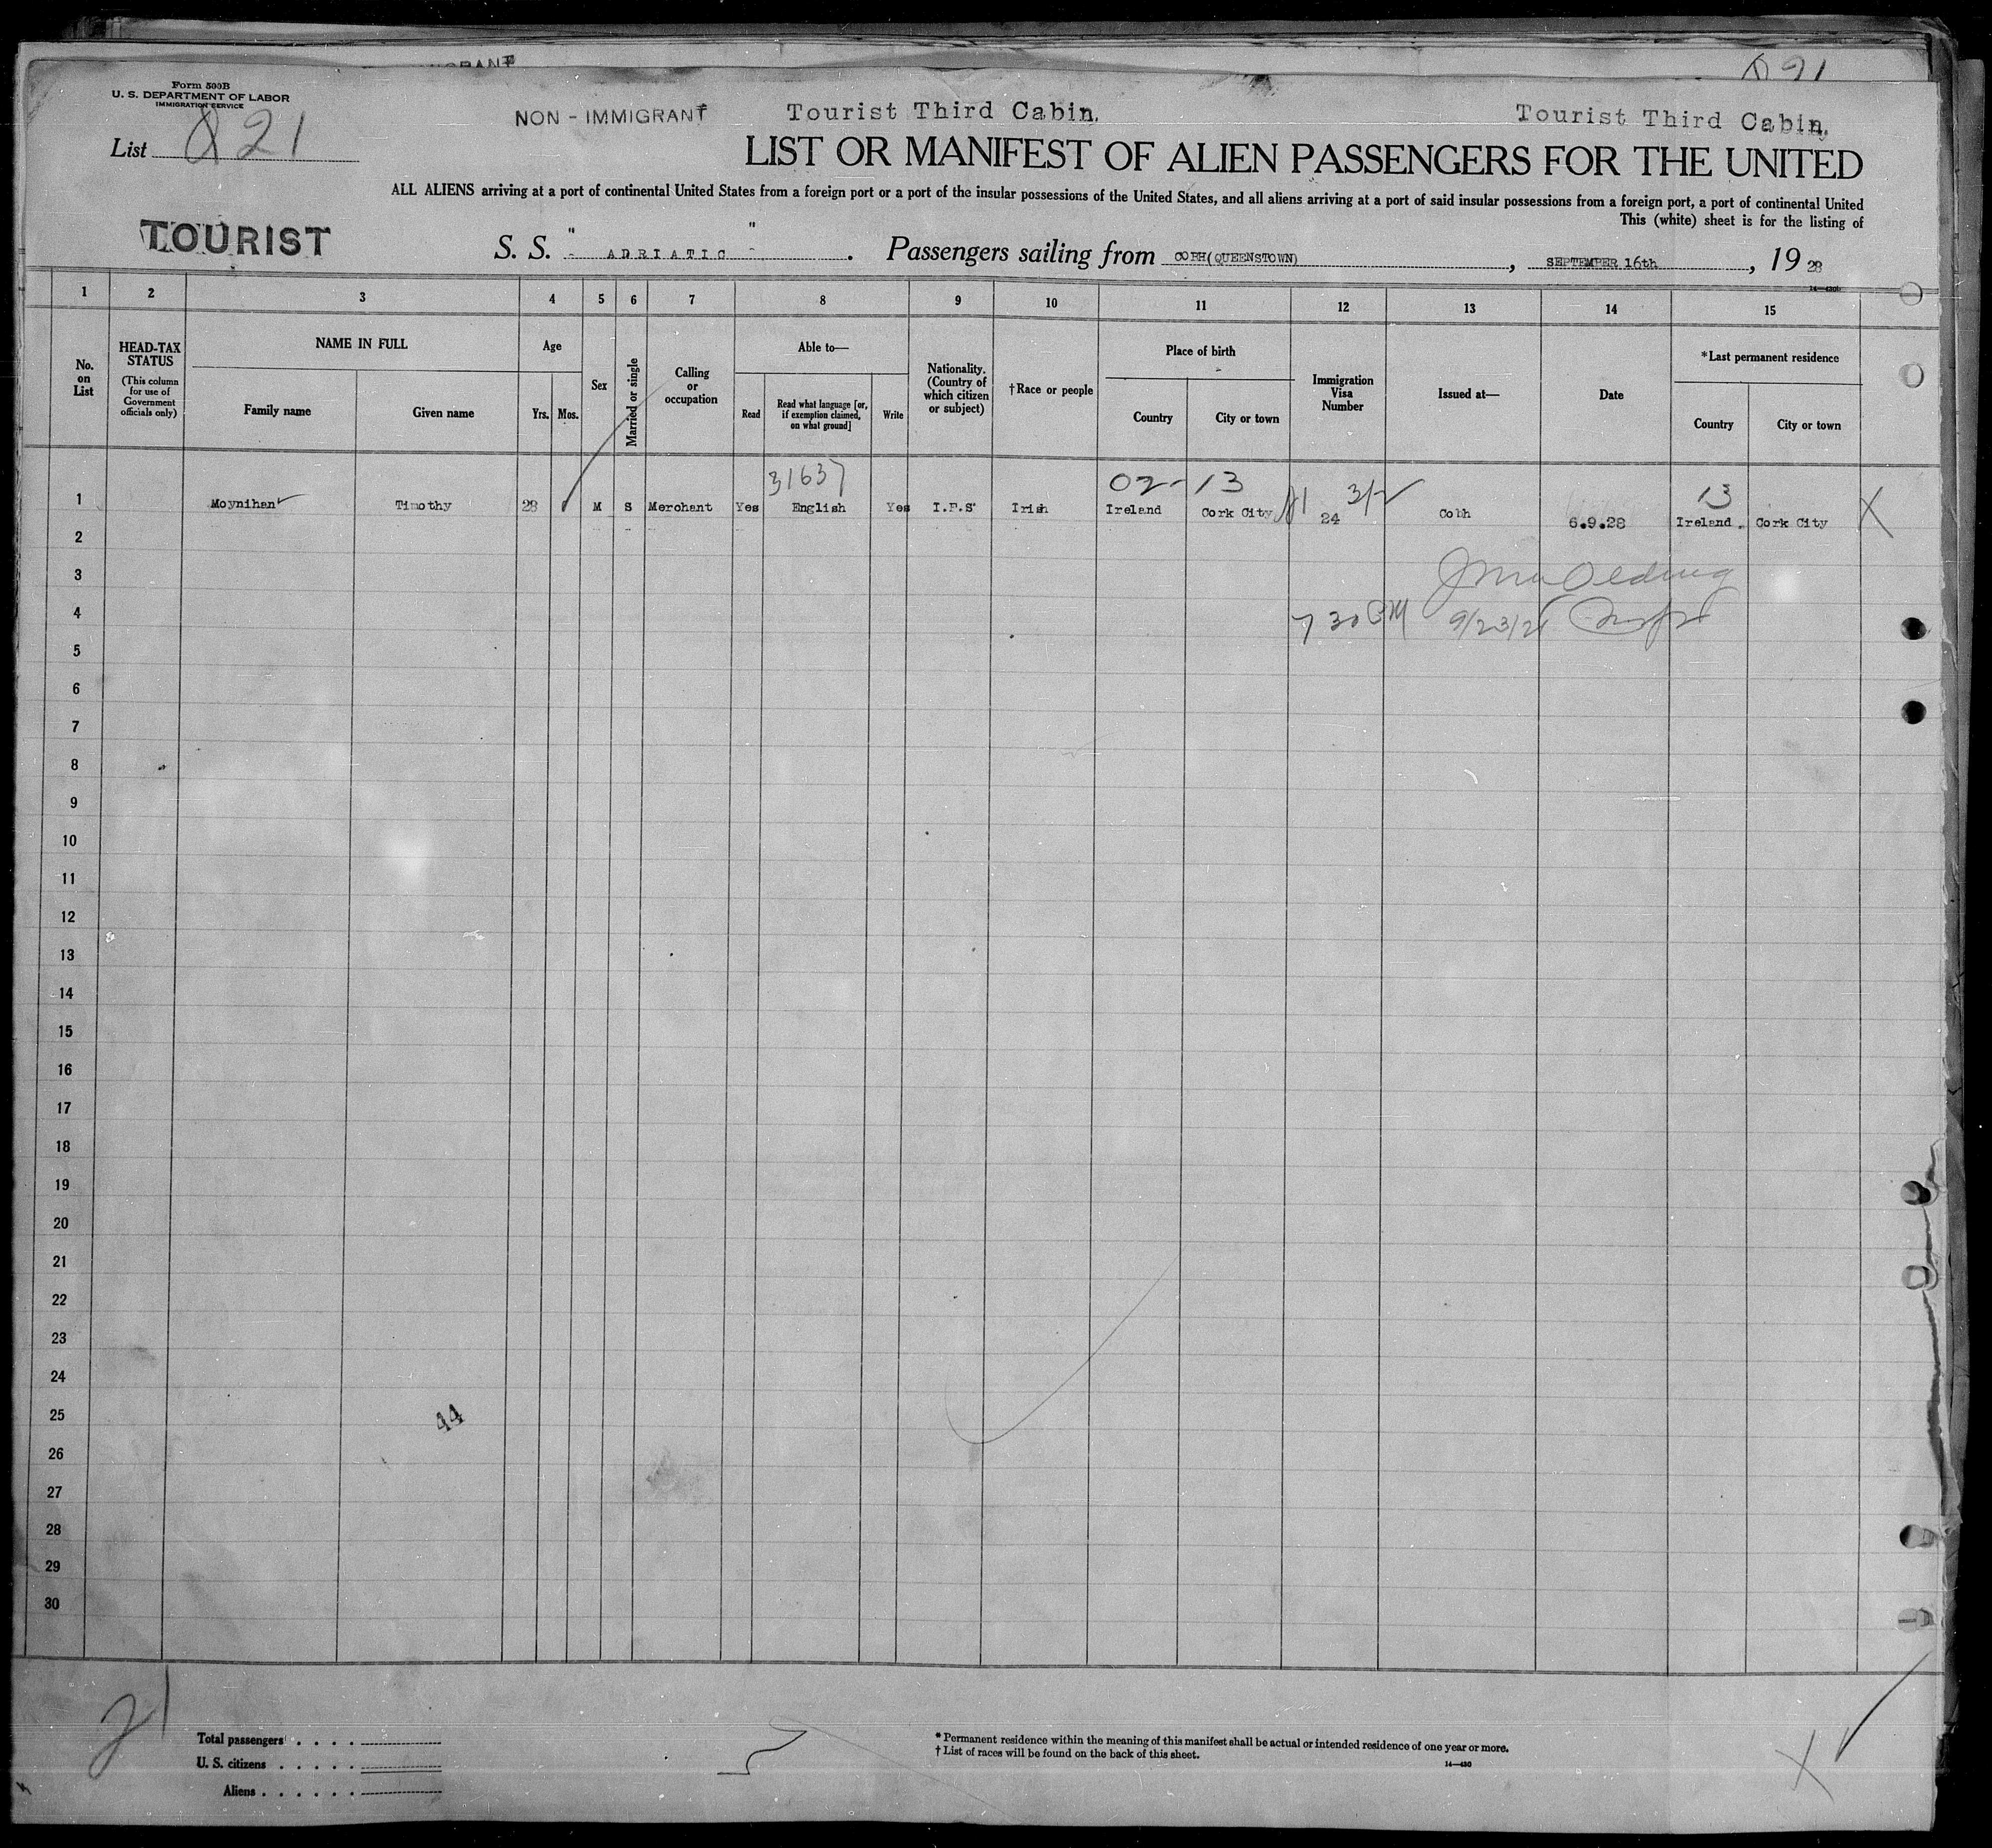 Form 500B
U. S. DEPARTMENT OF LABOR
IMMIGRATION SERVICE
List 21
NON - IMMIGRANT
Tourist Third Cabin.
Tourist Third Cabin.
LIST OR MANIFEST OF ALIEN PASSENGERS FOR THE UNITED
ALL ALIENS arriving at a port of continental United States from a foreign port or a port of the insular possessions of the United States, and all aliens arriving at a port of said insular possessions from a foreign port, a port of continental United
This (white) sheet is for the listing of
TOURIST
S. S. " ADRIATIC " . Passengers sailing from COBH(QUEENSTOWN) , SEPTEMBER 16th , 19 28
1 2 3 4 5 6 7 8 9 10 11 12 13 14 15
No. on List
HEAD-TAX STATUS
(This column for use of Government officials only)
NAME IN FULL
Family name
Given name
Age
Yrs.
Mos.
Sex
Married or single
Calling or occupation
Able to—
Read
Read what language [or, if exemption claimed, on what ground]
Write
Nationality. (Country of which citizen or subject)
†Race or people
Place of birth
Country
City or town
Immigration Visa Number
Issued at—
Date
*Last permanent residence
Country
City or town
31637
02-13
3/2
13
1 Moynihan Timothy 28 M S Merchant Yes English Yes I.F.S. Irish Ireland Cork City 24 Cobh 6.9.28 Ireland. Cork City X
2
3
4
7 30 PM
5
6
7
8
9
10
11
12
13
14
15
16
17
18
19
20
21
22
23
24
25
44
26
27
28
29
30
21
Total passengers . . . .
U. S. citizens . . . . .
Aliens . . . . . .
* Permanent residence within the meaning of this manifest shall be actual or intended residence of one year or more.
† List of races will be found on the back of this sheet.
14—430
X